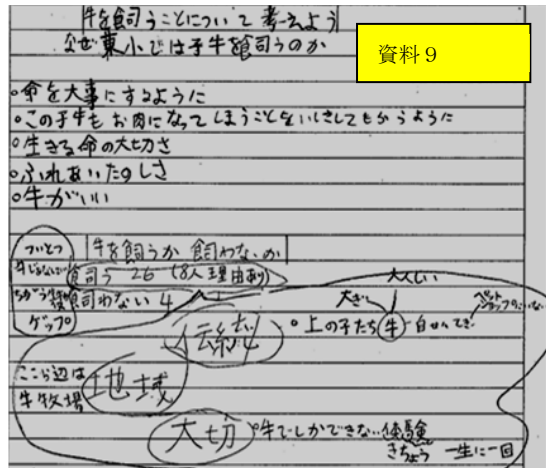 牛を飼うことについて考えよう
なぜ東小では子牛を飼うのか
資料９
○命を大事にするように
○この子牛もお肉になってしまうことをいしきしてもらうように
○生きる命の大切さ
○ふれあいたのしさ
○牛がいい
牛を飼うか 飼わないか
飼う 26 (8人理由あり)
飼わない 4
ゲップ
大人しい
大きい
○上の子たち 牛
伝統
ここら辺は
牛牧場
地域
大切
○牛でしかできない体験
きちょう 一生に一回